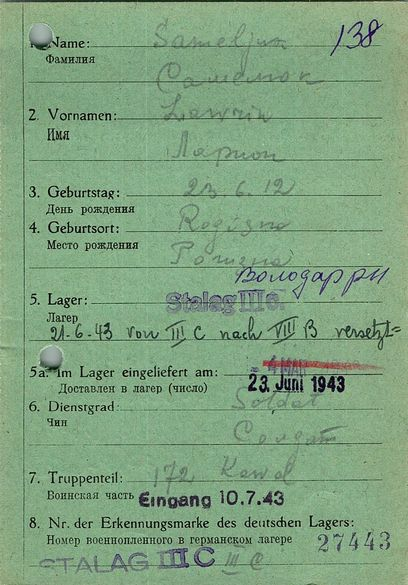 1. Name: Sameljuk 138
Фамилия Самелюк
2. Vornamen: Lawrin
Имя Ларион
3. Geburtstag: 23.6.12
День рождения
4. Geburtsort: Rogózna
Место рождения
Володар рн
5. Lager: Stalag III C.
Лагер
21-6-43 von III C nach VIII B versetzt=
5a. Im Lager eingeliefert am: 4 MAI
Доставлен в лагер (число) 23. Juni 1943
6. Dienstgrad: Soldat
Чин Солдат
7. Truppenteil: 172 Kawal
Воинская часть Eingang 10.7.43
8. Nr. der Erkennungsmarke des deutschen Lagers:
Номер военнопленного в германском лагере 27443
STALAG III C III C